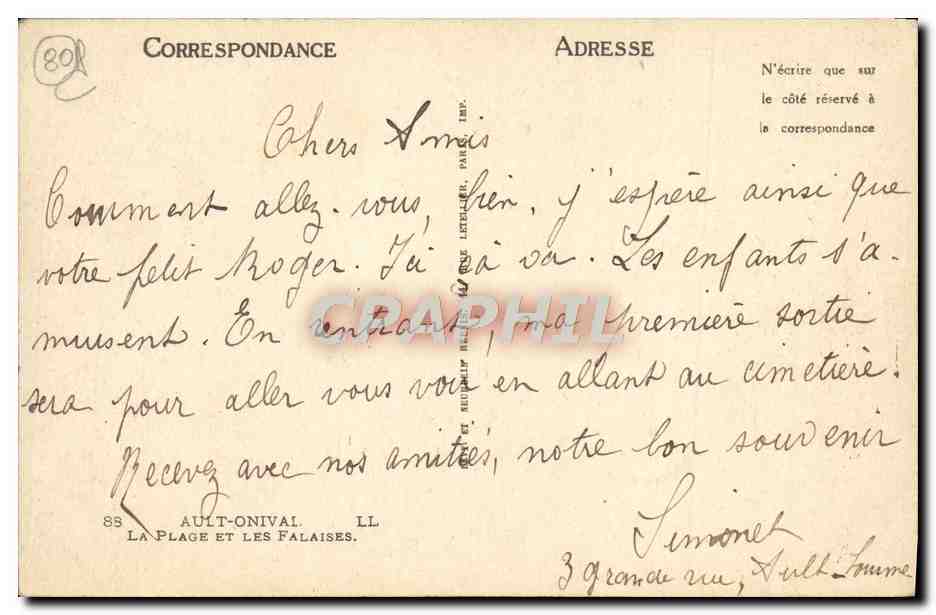 80f
CORRESPONDANCE
ADRESSE
N'écrire que sur
le côté réservé à
la correspondance
Chers Amis
Comment allez-vous, bien, j'espère ainsi que
votre petit Roger. Ici ça va. Les enfants s'a-
musent. En rentrant, ma première sortie
sera pour aller vous voir en allant au cimetière.
Recevez avec nos amitiés, notre bon souvenir
Simonet
3 grande rue, Ault-Somme
LEVY ET NEURDEIN REUNIS, 44, RUE LETELLIER, PARIS, IMP.
88 AULT-ONIVAL. LL
LA PLAGE ET LES FALAISES.
CRAPHIL